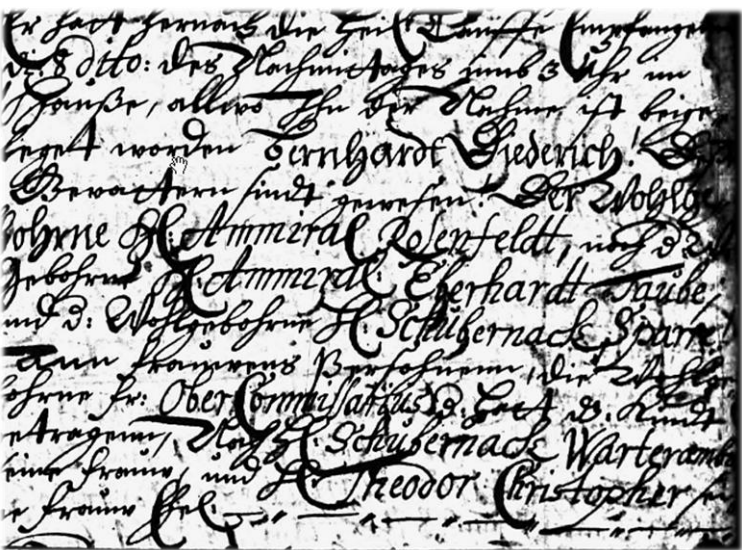 Er hatt hernach die Heil: Tauffe Empfangen
d: 8 ditto: des Nachmittages umb 3 Uhr im
Hauße, allwo Ihn der Nahme ist beige
leget worden Bernhardt Diederich! Die
Gevattern sindt gewesen: Der Wohlge
bohrne H: Ammiral Rosenfeldt, noch d: Wol
gebohrne H: Ammiral: Eberhardt Taube,
und d: Wohlgebohrne H: Schübernack Sparr!
Ann frauwens Persohnenn, die Wohlge
bohrne fr: Ober Commissarius d: hatt d: Kindt
getragenn, Nach H: Schübernack Warteramb
seine frauw, und H: Theodor Christopher sei
ne frauw Ehel: